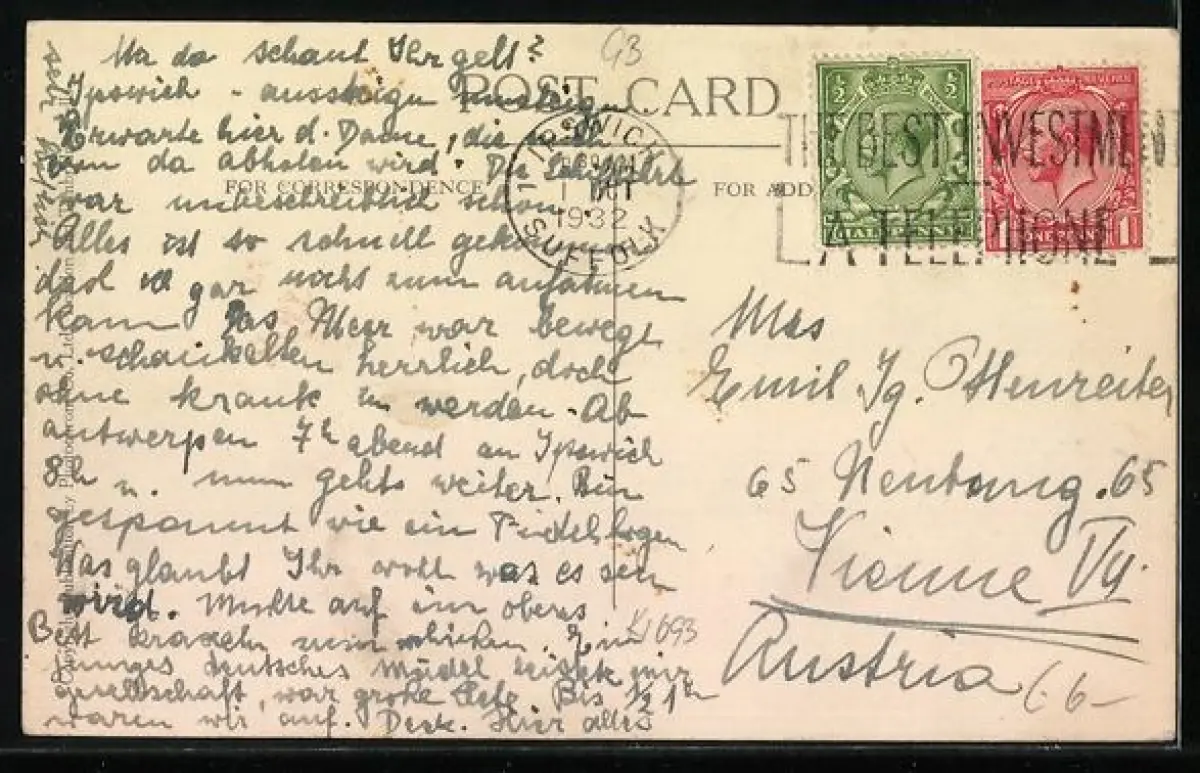 Na da schaut Ihr gelt?
Ipswich - aussteigen umsteigen.
Erwarte hier d. Dame, die mich
von da abholen wird. Die
war unbeschreiblich schön.
Alles ist so schnell gekommen
daß ich gar nicht zum aufatmen
kam. Das Meer war bewegt
u. schaukelten herrlich, doch
ohne krank zu werden. Ab
antwerpen 7h abend an Ipswich
8h u. nun gehts weiter. Bin
gespannt wie ein Fidelbogen
Was glaubt Ihr wohl was es sein
wird. Mußte auf ein oberes
Bett kraxeln zum schlafen. Ein
junges deutsches Mädel leistete mir
gesellschaft, war große Hetz. Bis 1/2 1h
waren wir auf. Deck. Hier alles
sehr
GB
POST CARD
FOR CORRESPONDENCE
FOR ADD
IPSWICH
1 OCT
1932
SUFFOLK
THE BEST INVESTMENT
A TELEPHONE
1/2 1/2
HALF PENNY
POSTAGE REVENUE
1 ONE PENNY 1
Mrs
Emil Ig. Ottenreiter
65 Neubaug. 65
Vienne VII.
Austria
KJ693
6-